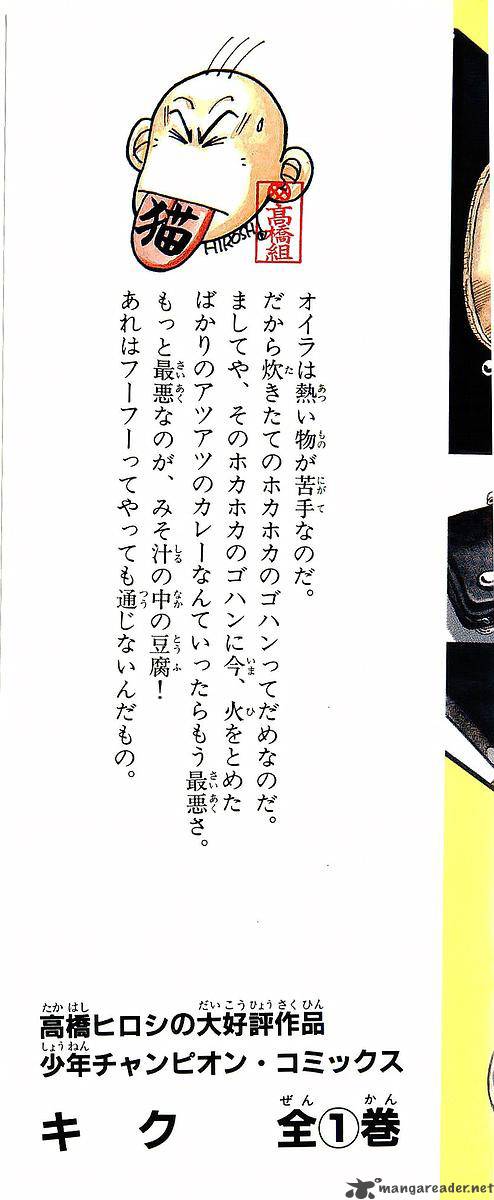 猫
HIROSHI
高橋組
オイラは熱い物が苦手なのだ。
だから炊きたてのホカホカのゴハンってだめなのだ。
ましてや、そのホカホカのゴハンに今、火をとめた
ばかりのアツアツのカレーなんていったらもう最悪さ。
もっと最悪なのが、みそ汁の中の豆腐！
あれはフーフーってやっても通じないんだもの。
高橋ヒロシの大好評作品
少年チャンピオン・コミックス
キク 全①巻
mangareader.net